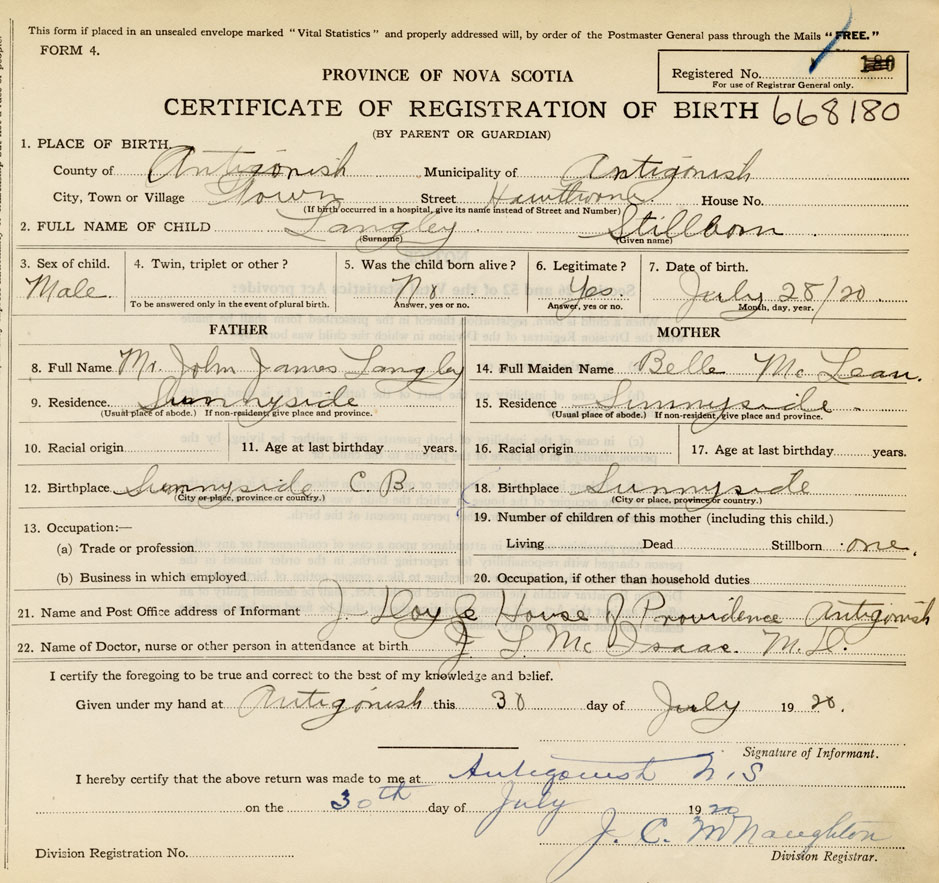 This form if placed in an unsealed envelope marked "Vital Statistics" and properly addressed will, by order of the Postmaster General pass through the Mails "FREE."
FORM 4.
Registered No. 180
For use of Registrar General only.
PROVINCE OF NOVA SCOTIA
CERTIFICATE OF REGISTRATION OF BIRTH 668180
(BY PARENT OR GUARDIAN)
1. PLACE OF BIRTH.
County of Antigonish Municipality of Antigonish
City, Town or Village Town Street Hawthorne House No.
(If birth occurred in a hospital, give its name instead of Street and Number)
2. FULL NAME OF CHILD Langley Stillborn
(Surname) (Given name)
3. Sex of child. 4. Twin, triplet or other? 5. Was the child born alive? 6. Legitimate? 7. Date of birth.
Male. No Yes July 28/20
To be answered only in the event of plural birth. Answer, yes or no. Answer, yes or no. Month, day, year.
FATHER MOTHER
8. Full Name Mr. John James Langley 14. Full Maiden Name Belle McLean.
9. Residence. Sunnyside 15. Residence Sunnyside
(Usual place of abode.) If non-resident, give place and province. (Usual place of abode.) If non-resident, give place and province.
10. Racial origin 11. Age at last birthday years. 16. Racial origin 17. Age at last birthday years.
12. Birthplace Sunnyside C.B. 18. Birthplace Sunnyside
(City or place, province or country.) (City or place, province or country.)
13. Occupation:— 19. Number of children of this mother (including this child.)
(a) Trade or profession Living Dead Stillborn one.
(b) Business in which employed 20. Occupation, if other than household duties
21. Name and Post Office address of Informant J. House of Providence Antigonish
22. Name of Doctor, nurse or other person in attendance at birth J. L. McIsaac. M.D.
I certify the foregoing to be true and correct to the best of my knowledge and belief.
Given under my hand at Antigonish this 30 day of July 1920.
Signature of Informant.
I hereby certify that the above return was made to me at Antigonish N.S
on the 30th day of July 1920
J. C. McNaughton
Division Registration No. Division Registrar.